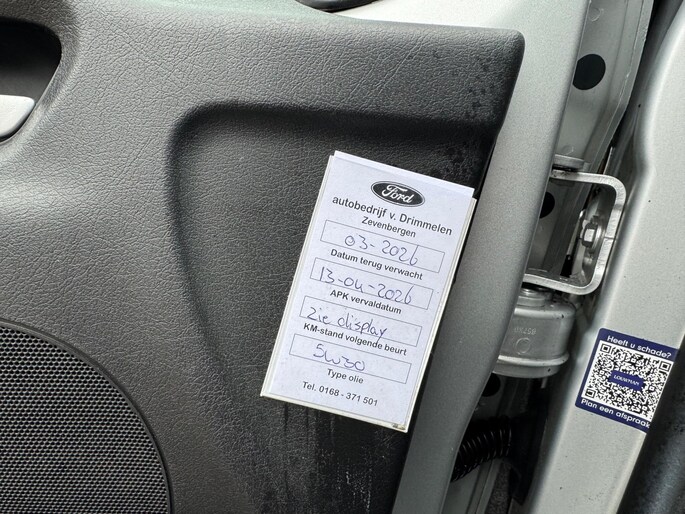 Ford
autobedrijf v. Drimmelen
Zevenbergen
03-2026
Datum terug verwacht
13-04-2026
APK vervaldatum
Zie display
KM-stand volgende beurt
5w30
Type olie
Tel. 0168 - 371 501
Heeft u schade?
LOUWMAN
Plan een afspraak